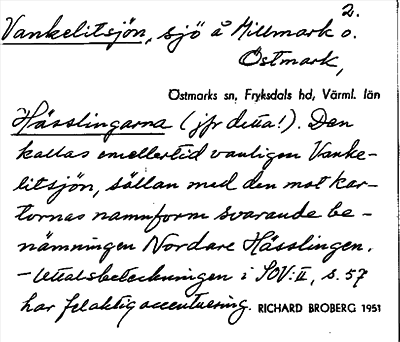 2.
Vankelitsjön, sjö å Millmark o.
Östmark,
Östmarks sn, Fryksdals hd, Värml. län
Hässlingarna (jfr detta!). Den
kallas emellertid vanligen Vanke-
litsjön, sällan med den mot kar-
tornas namnform svarande be-
nämningen Nordare Hässlingen.
- Uttalsbeteckningen i SOV:II, s. 57
har felaktig accentuering. RICHARD BROBERG 1951